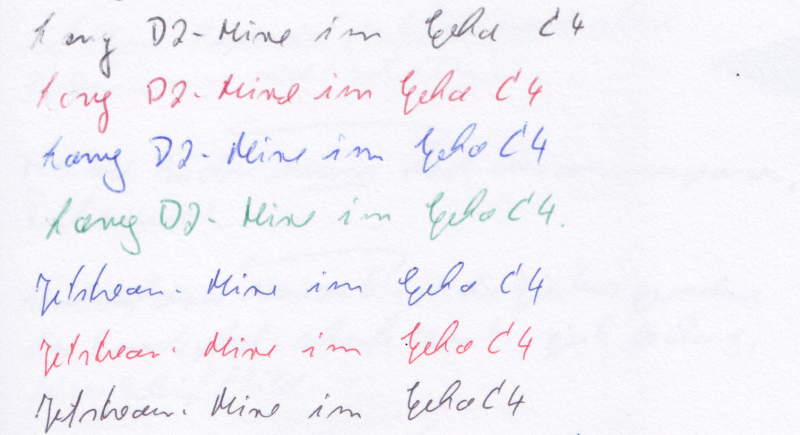 Lamy D2-Mine im Geha C4
Lamy D2-Mine im Geha C4
Lamy D2-Mine im Geha C4
Lamy D2-Mine im Geha C4.
Jetstream-Mine im Geha C4
Jetstream-Mine im Geha C4
Jetstream-Mine im Geha C4